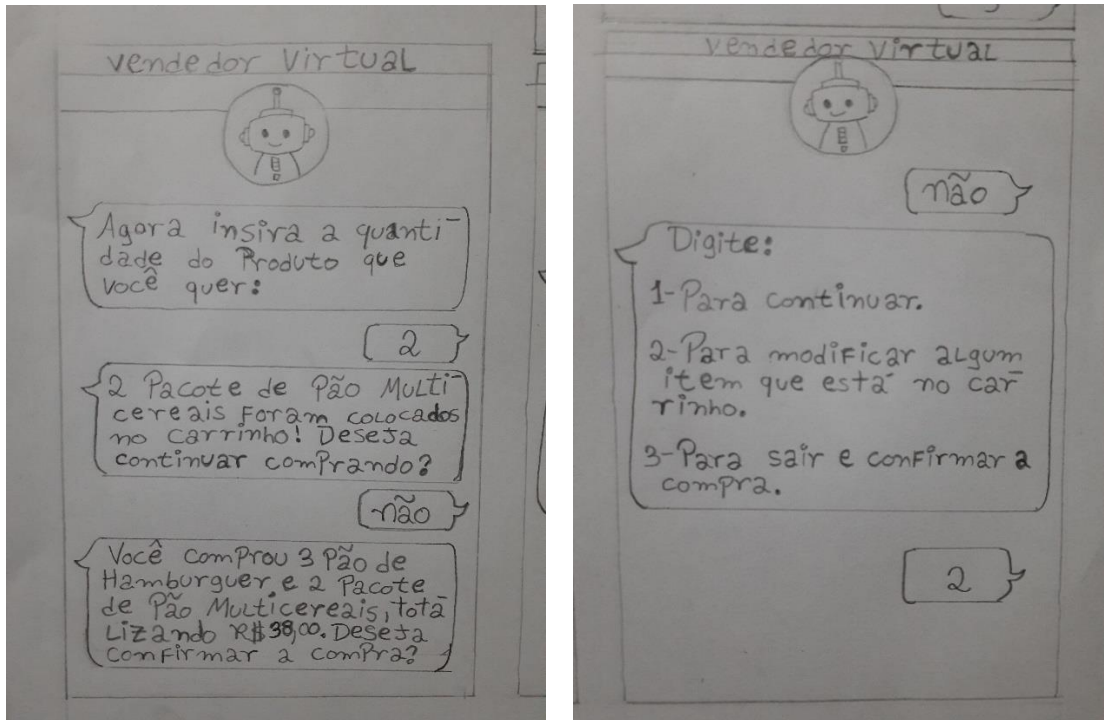 vendedor virtual
Agora insira a quanti-
dade do Produto que
você quer:
2
2 Pacote de Pão Multi-
cereais Foram colocados
no carrinho! Deseja
continuar comprando?
não
Você comprou 3 Pão de
Hamburguer e 2 Pacote
de Pão Multicereais, tota
Lizando R$38,00. Deseja
confirmar a compra?
vendedor virtual
não
Digite:
1-Para continuar.
2-Para modificar algum
item que está no car-
rinho.
3-Para sair e confirmar a
compra.
2